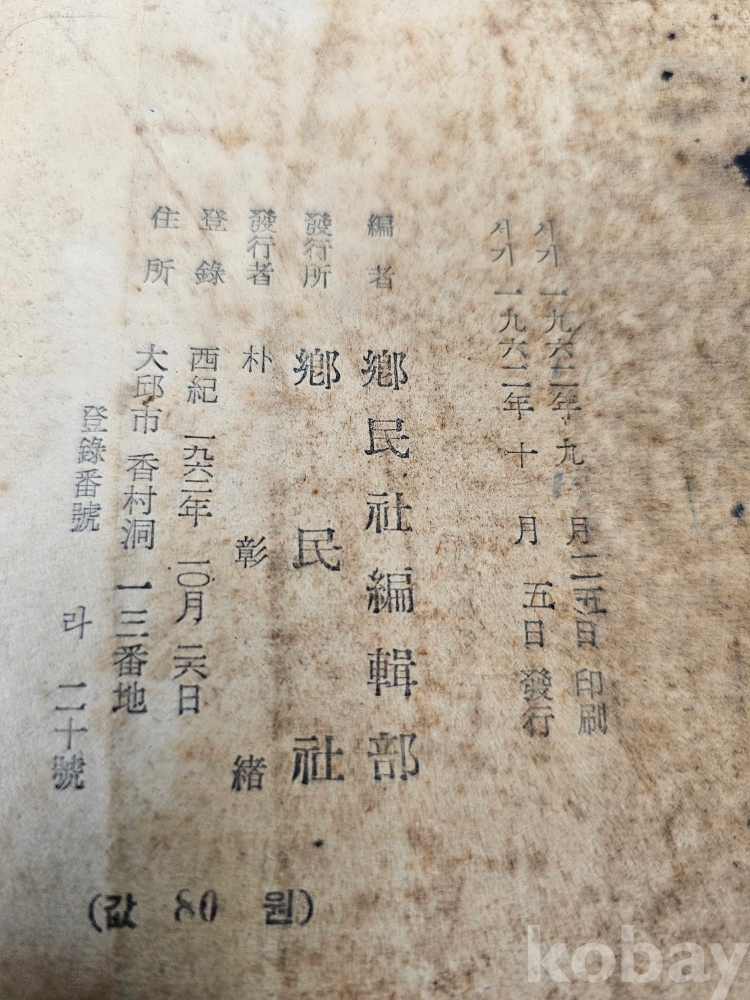 서기 一九六二年 九 月 二五日 印刷
서기 一九六二年 十 月 五日 發行
編者 鄕民社編輯部
發行所 鄕民社
發行者 朴彰緖
登錄 西紀 一九六二年 一〇月 二六日
住所 大邱市 香村洞 一三番地
登錄番號 라 二十號
(값 80 원)
kobay